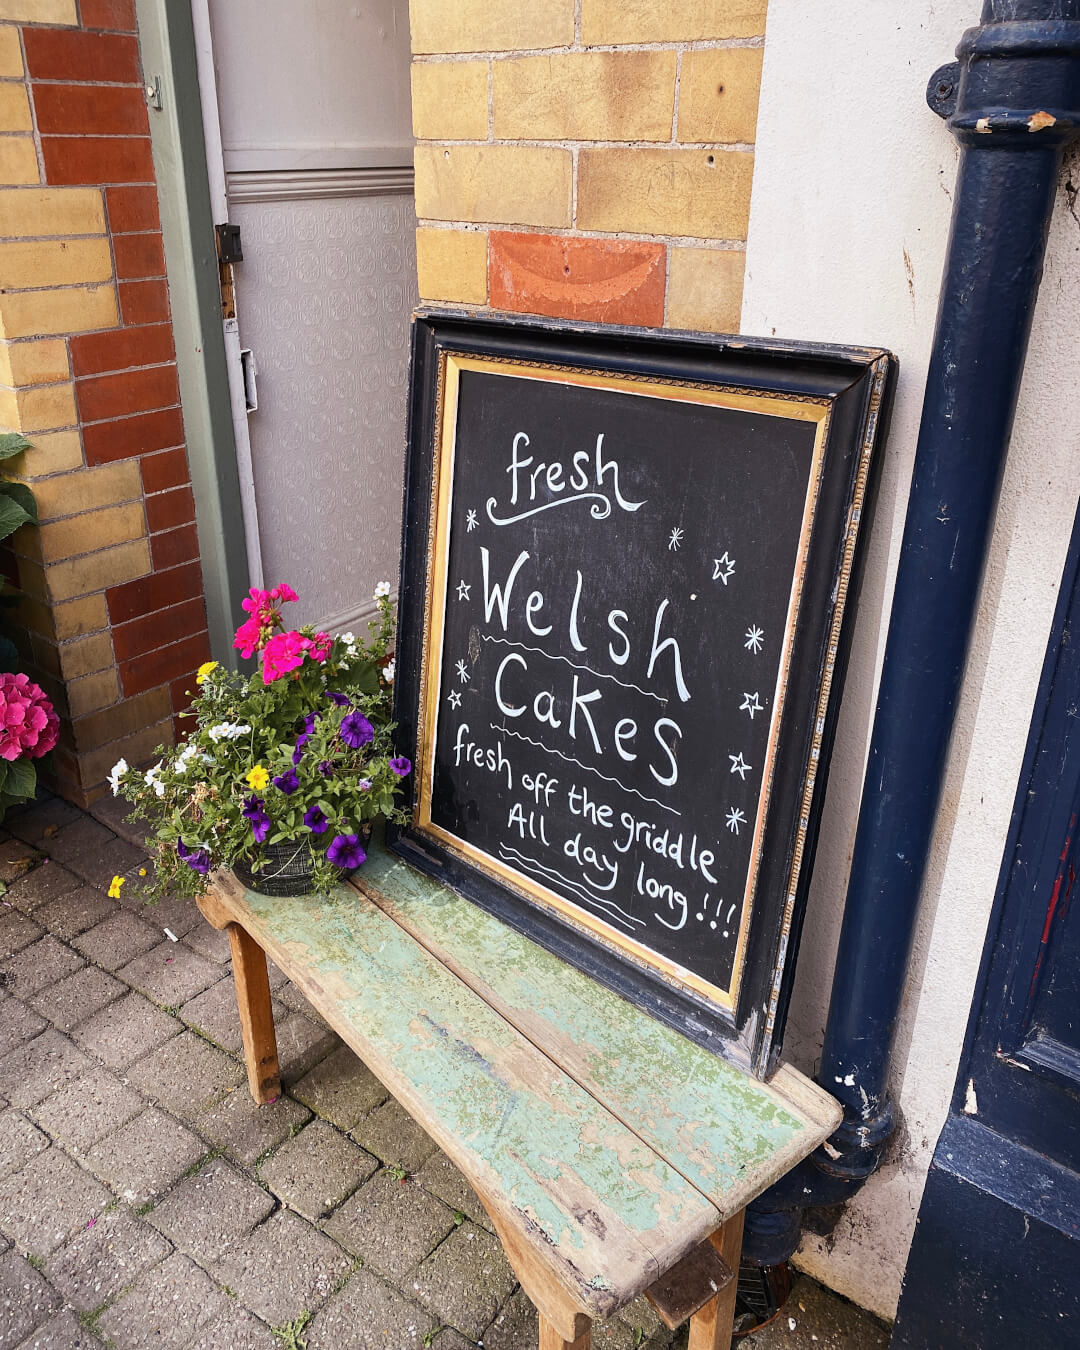 fresh
Welsh
Cakes
fresh off the griddle
All day long!!!